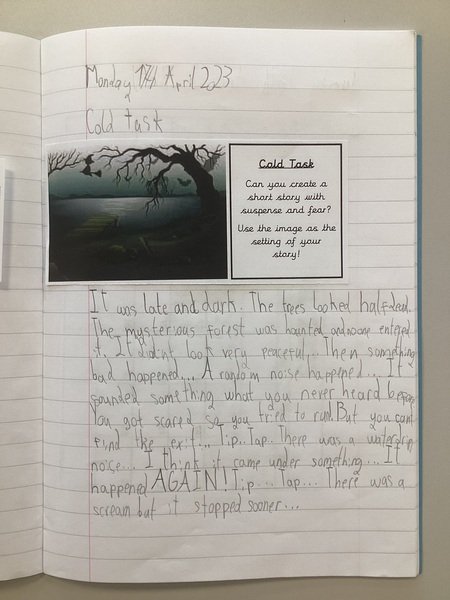 Monday 17th April 2023
Cold task
Cold Task
Can you create a
short story with
suspense and fear?
Use the image as the
setting of your
story!
It was late and dark. The trees looked half dead.
The mysterious forest was haunted and noone entered
it. It didnt look very peaceful... Then something
bad happened... A random noise happened... It
sounded something what you never heard before
You got scared so you tried to run. But you cant
find the exit... Tip.. Tap.. There was a waterdrip
noise... I think it came under something... It
happened AGAIN! Tip... Tap... There was a
scream but it stopped sooner...